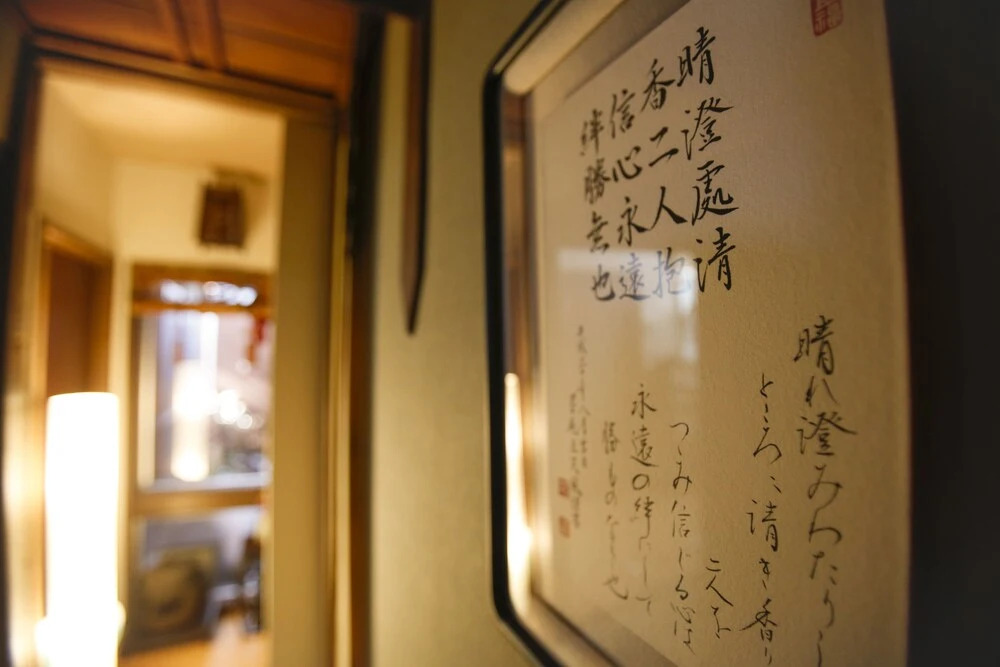 晴澄處請
香二人抱
信心永遠
絆勝無也
晴れ澄みわたりし
ところに請き香り
二人を
つつみ信じる心は
永遠の絆にして
勝ものなし也